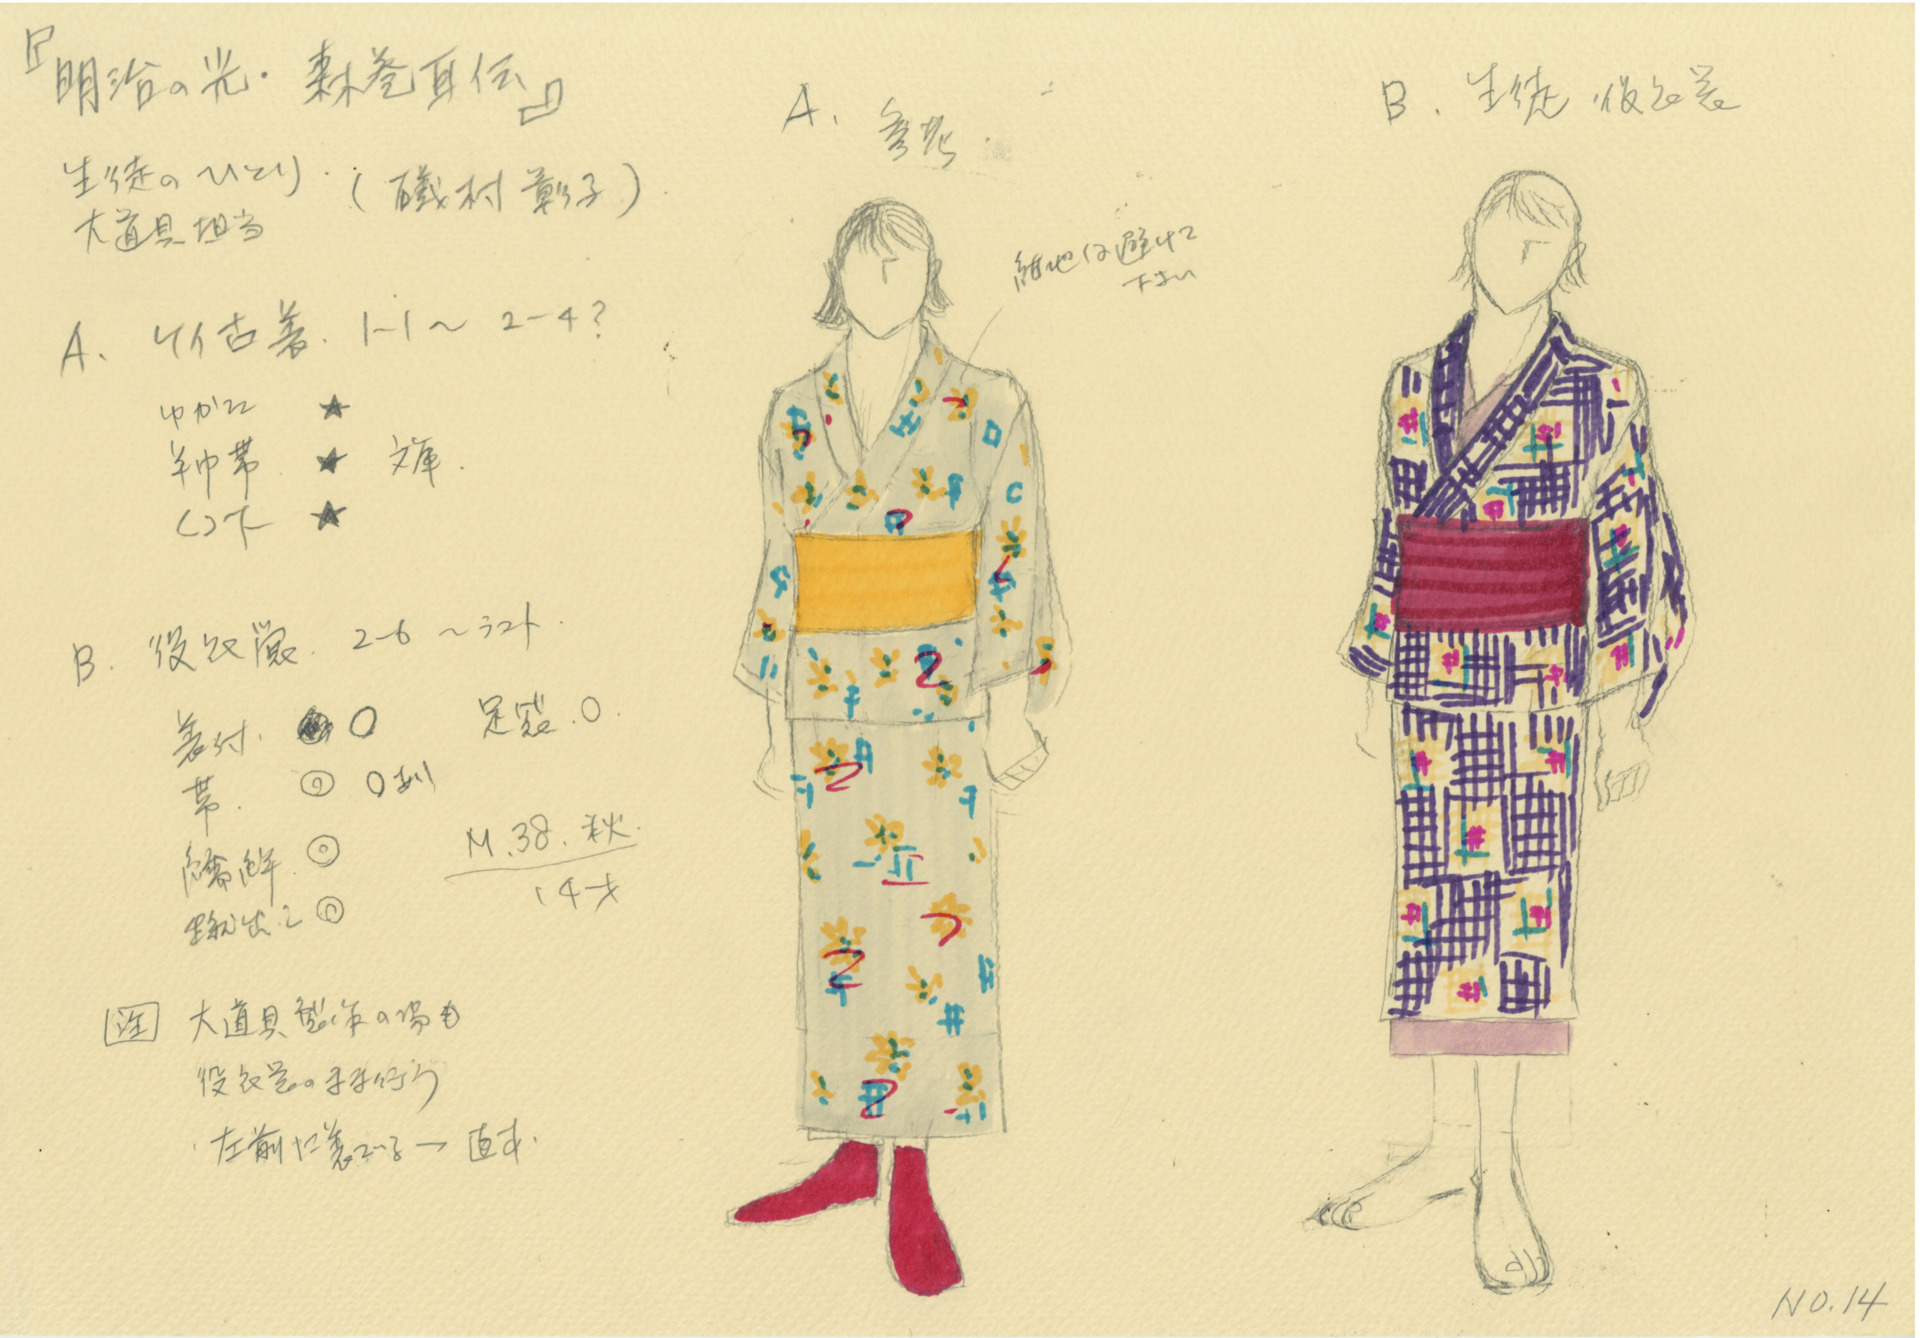 『明治の光・森巻耳伝』
生徒のひとり.(磯村彰子).
大道具担当
A. ケイ古着. 1-1〜2-4?
ゆかた ★
半巾帯 ★ 文庫.
くつ下 ★
B. 役衣裳. 2-6〜ラスト.
着付. ○ 足袋.○.
帯. ◎ ○あり
◎
◎
M.38.秋.
14才
注 大道具製作の場も
役衣裳のまま行う
左前に着ている→直す.
A. 参考.
紺地は避けて
下さい
B. 生徒 役衣裳
NO.14